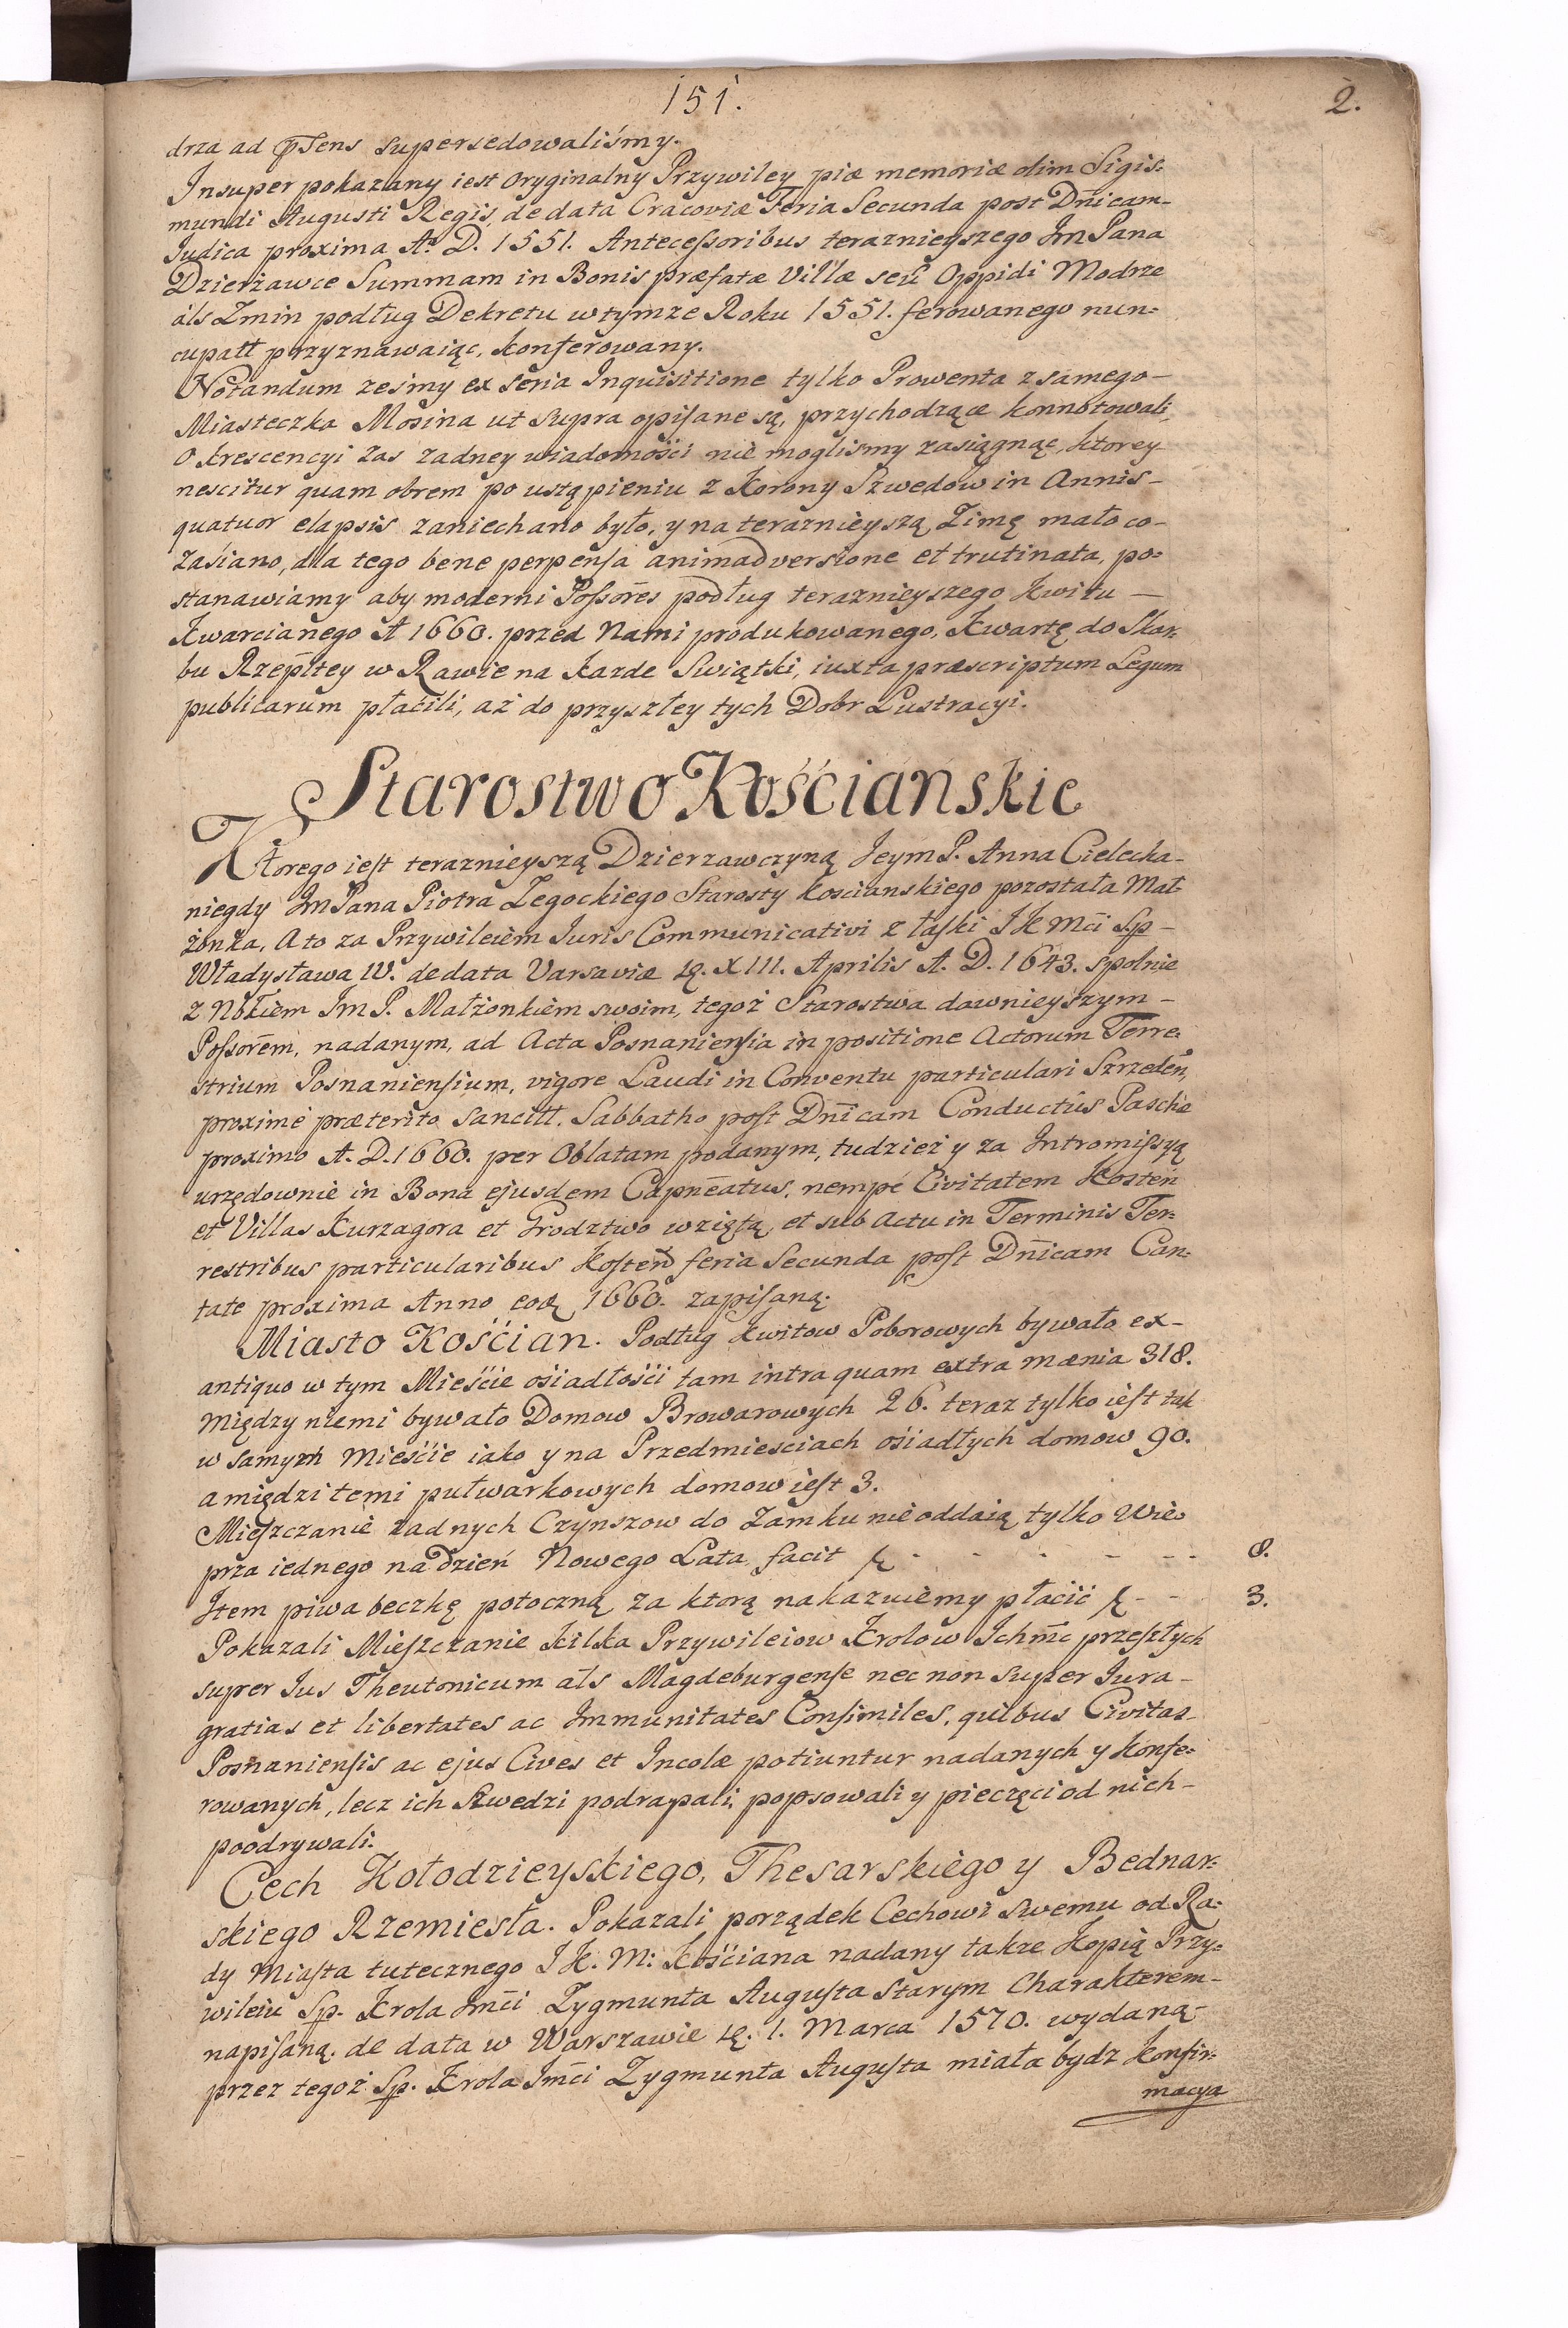 151.
2.
drza ad p̄sens supersedowaliśmy.
Insuper pokazany iest oryginalny Przywiley piæ memoriæ olim Sigis:
mundi Augusti Regis, de data Cracoviæ Feria Secunda post Dn̄icam
Judica proxima Aº. D. 1551. Antecessoribus teraznieyszego Jm Pana
Dzierżawce Summam in Bonis præfatæ Villæ seu Oppidi Modrze
als Zmin podług Dekretu w tymże Roku 1551. ferowanego nun:
cupatt przyznawaiąc, konferowany.
Notandum żeśmy ex seria Inquisitione tylko Prowenta z samego
Miasteczka Mosina ut supra opisane są, przychodzące konnotowali,
O krescencyi zas zadney wiadomości nie moglismy zasiągnąc, ktorey
nescitur quam obrem po ustąpieniu z Korony Szwedow in Annis
quatuor elapsis zaniechano było, y na teraznieyszą Zimę mało co
zasiano, dla tego bene perpensa animadversione et trutinata, po:
stanawiamy aby moderni Possōres podług teraznieyszego Kwitu
Kwarcianego A 1660. przed Nami produkowanego, Kwartę do Skar:
bu Rzepltey w Rawie na każde Swiątki, iuxta præscriptum Legum
publicarum płacili, aż do przyszłey tych Dobr Lustracyi.
Starostwo Kościanskie
Ktorego iest teraznieyszą Dzierzawczyną Jeym P. Anna Cielecka
niegdy Jm Pana Piotra Zegockiego Starosty Koscianskiego pozostała Mał
żonka, A to za Przywileiem Iuris Communicativi z łaski J K Mci Sp
Władysława IV. de data Varsaviæ d. XIII. Aprilis A. D. 1643. spolnie
z Jm P. Małżonkiem swoim, tegoż Starostwa dawnieyszym
Possorem, nadanym, ad Acta Posnaniensia in positione Actorum Terre:
strium Posnaniensium, vigore Laudi in Conventu particulari Srzeden,
proxime præterito sancitt. Sabbatho post Dn̄icam Conductus Paschæ
proximo A. D. 1660. per Oblatam podanym, tudzież y za Intromissyą
urzędownie in Bona ejusdem Capn̄eatus, nempe Civitatem Kosten
et Villas Kurzagora et Grodztwo wziętą, et sub Actu in Terminis Ter:
restribus particularibus Kosten feria Secunda post Dn̄icam Can:
tate proxima Anno eod 1660. zapisaną.
Miasto Kościan. Podług Kwitow Poborowych bywało ex
antiquo w tym Mieście ośiadłości tam intra quam extra mænia 318.
Między niemi bywało Domow Browarowych 26. teraz tylko iest tak
w samym Mieście iako y na Przedmiesciach ośiadłych domow 90.
a międzi temi putwarkowych domow iest 3.
Mieszczanie żadnych Czynszow do Zamku nie oddaią tylko Wie:
prza iednego na dzień Nowego Lata facit 8.
Item piwa beczkę potoczną za ktorą nakazuiemy płacić 3.
Pokazali Mieszczanie kilka Przywileiow Krolow Ichm̄c przeszłych
super Ius Theutonicum als Magdeburgense nec non super Iura
gratias et libertates ac Immunitates Consimiles, quibus Civitas
Posnaniensis ac ejus Cives et Incolæ potiuntur nadanych y konfe:
rowanych, lecz ich Szwedzi podrapali, popsowali y pieczęci od nich
poodrywali.
Cech Kołodzieyskiego, Thesarskiego y Bednar:
skiego Rzemiesła. Pokazali porządek Cechowi swemu od Ra:
dy Miasta tutecznego J K. M: Kościana nadany takze Kopią Przy:
wileiu Sp. Krola Jmći Zygmunta Augusta starym charakterem
napisaną, de data w Warszawie d. 1. Marca 1570. wydaną
przez tegoż Sp. Krola Jmći Zygmunta Augusta miała bydz konfir:
macya